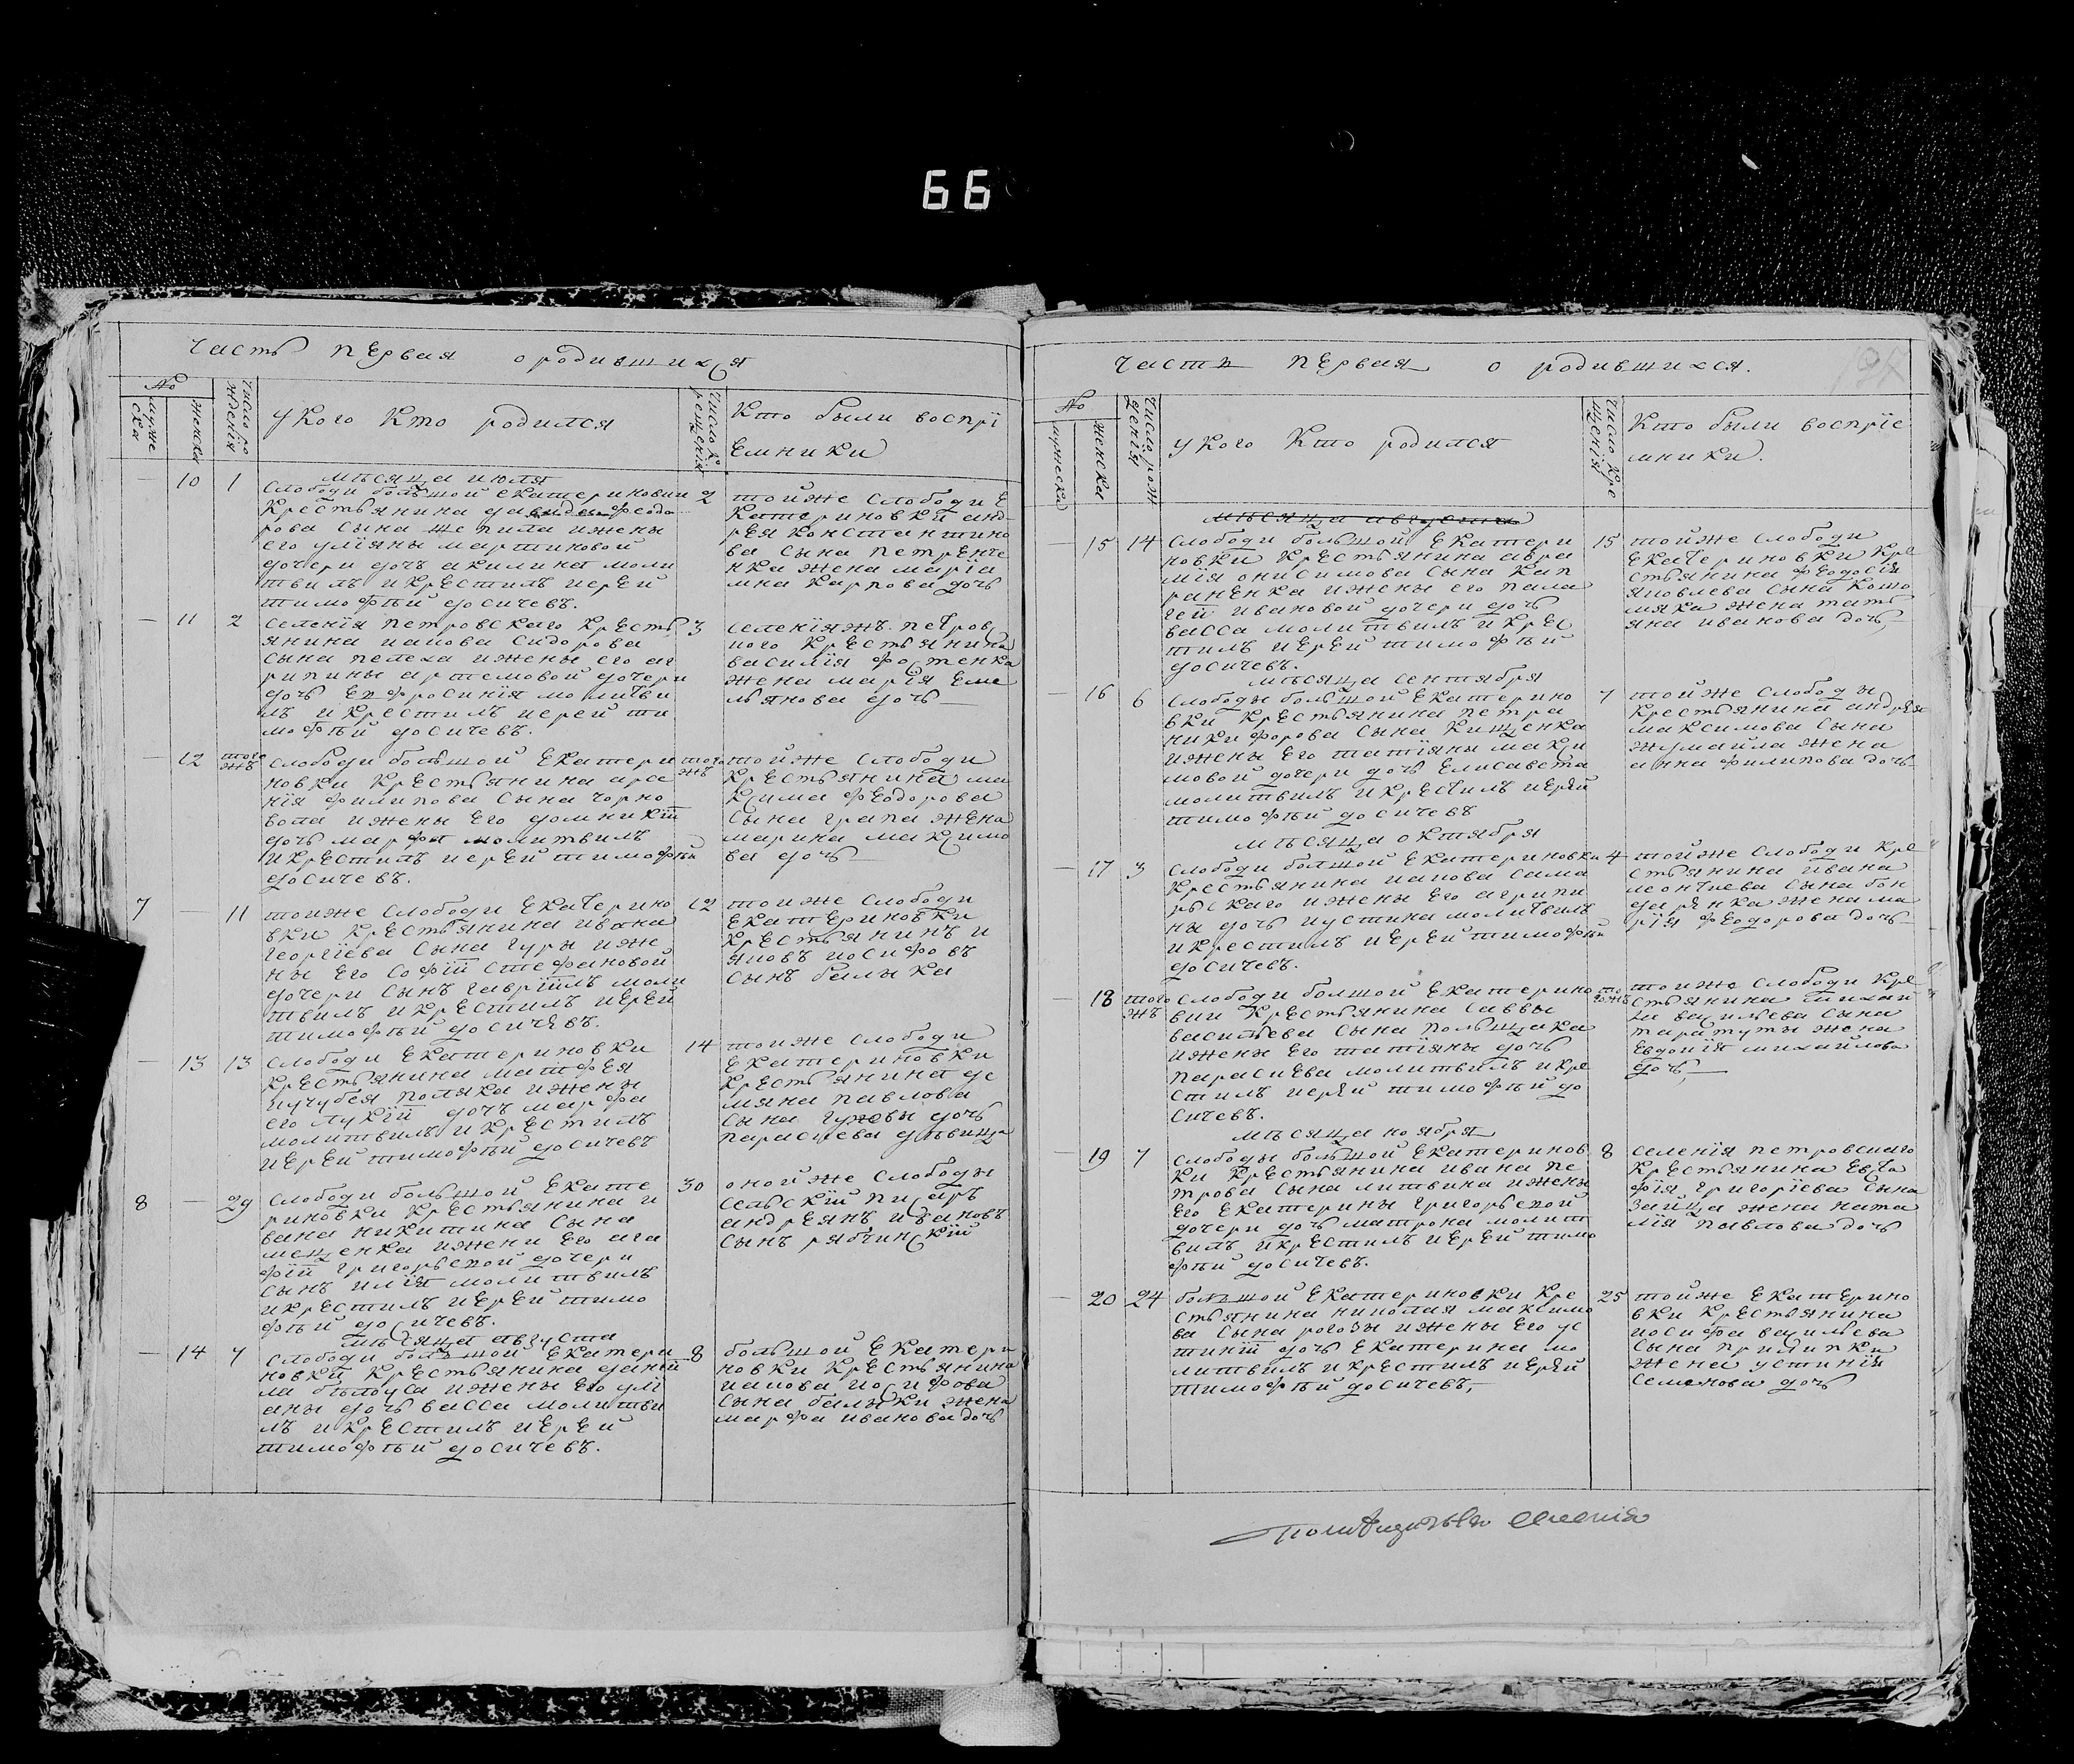 66
часть первая о родившихся
№
мужеска
женска
число рождения
у кого кто родился
число крещения
кто были воспрі
емники
месяца июля
10 1
слободи большой екатериновки
крестьянина давида феодо
рова сына жены
его уліяны мартиновой
дочери дочь акилина моли
твилъ и крестилъ иерей
тимофѣй досичевъ.
2
той же слободи е
катериновки анд
рея константино
ва сына петренче
нка жена марія
карпова дочь
11 2
селенія петровскаго кресть
янина иакова сидорова
сына пелеха и жены его аг
рипины артемовой дочери
дочь епфросинія молитви
лъ и крестилъ иерей ти
мофѣй досичевъ.
3
селенія жъ петров
ного крестьянина
василія фостенка
жена марія еме
льянова дочь
12 того жъ
слободи большой екатери
новки крестьянина арсе
нія филипова сына чорно
вола и жены его домникіи
дочь марфа молитвилъ
и крестилъ иерей тимофѣй
досичевъ.
того жъ
той же слободи
крестьянина ма
ксима феодорова
сына грапа жена
марина максимо
ва дочь
7 11
той же слободи екатерино
вки крестьянина ивана
георгіева сына гуры и же
ны его софіи стефановой
дочери сынъ гавріилъ моли
твилъ и крестилъ иерей
тимофѣй досичевъ.
12
той же слободи
екатериновки
крестьянинъ и
яковъ иосифовъ
сынъ балыка
13 13
слободи екатериновки
крестьянина матфея
кучубея поляка и жены
его лукіи дочь марфа
молитвилъ и крестилъ
иерей тимофѣй досичевъ
14
той же слободи
екатериновки
крестьянина де
мяна павлова
сына дочь
параскева дѣвица
8 29
слободи большой екате
риновки крестьянина и
вана никитина сына
мащенка и жени его ага
фіи григорьевой дочери
сынъ илія молитвилъ
и крестилъ иерей тимо
фѣй досичевъ.
30
оной же слободы
сельскій писаръ
андреянъ ивановъ
сынъ рябчинскій
месяца августа
14 7
слободи большой екатери
новки крестьянина дании
ла бѣлоуса и жены его улі
аны дочь васса молитви
лъ и крестилъ иерей
тимофѣй досичевъ.
8
большой екатери
новки крестьянина
иакова иосифова
сына балыки жена
марфа иванова дочь
часть первая о родившихся.
№
мужеска
женска
число рождения
у кого кто родился
число крещенія
кто были воспріе
мники.
месяца августа
15 14
слободи большой екатери
новки крестьянина авра
мія онисимова сына кап
раненка и жены его пела
геи ивановой дочери дочь
васса молитвилъ и крес
тилъ иерей тимофѣй
досичевъ.
15
той же слободи
екатериновки кре
стьянина феодосія
яковлева сына кошо
мяка жена тать
яна иванова дочь
месяца сентября
16 6
слободы большой екатерино
вки крестьянина петра
никифорова сына кищенка
и жены его татіяны макси
мовой дочери дочь елисавета
молитвилъ и крестилъ иерей
тимофѣй досичевъ
7
той же слободы
крестьянина андрея
максимова сына
жумайла жена
анна филипова дочь
месяца октября
17 3
слободи болшой екатериновки
крестьянина иакова сама
рьскаго и жены его агрипи
ны дочь иустина молитвилъ
и крестилъ иерей тимофѣй
досичевъ.
4
той же слободи кре
стьянина ивана
леонтиева сына бон
даренка жена ма
рія феодорова дочь
18 того жъ
слободи болшой екатерино
вки крестьянина саввы
васильева сына польщака
и жены его татіяны дочь
параскева молитвилъ и кре
стилъ иерей тимофѣй до
сичевъ.
того жъ
той же слободи кре
стьянина михаи
ла васильева сына
таратуты жена
евдокія михайлова
дочь
месяца ноября
19 7
слободы большой екатеринов
ки крестьянина ивана пе
трова сына литвина и жены
его екатерины григорьевой
дочери дочь матрона молит
вилъ и крестилъ иерей тимо
фѣй досичевъ.
8
селенія петровскаго
крестьянина евста
фія григоріева сына
зайца жена ната
лія павлова дочь
20 24
большой екатериновки кре
стьянина николая максимо
ва сына рогозы и жены его ус
тиніи дочь екатерина мо
литвилъ и крестилъ иерей
тимофѣй досичевъ,
25
той же екатерино
вки крестьянина
иосифа васильева
сына прилипки
жена устинія
семенова дочь